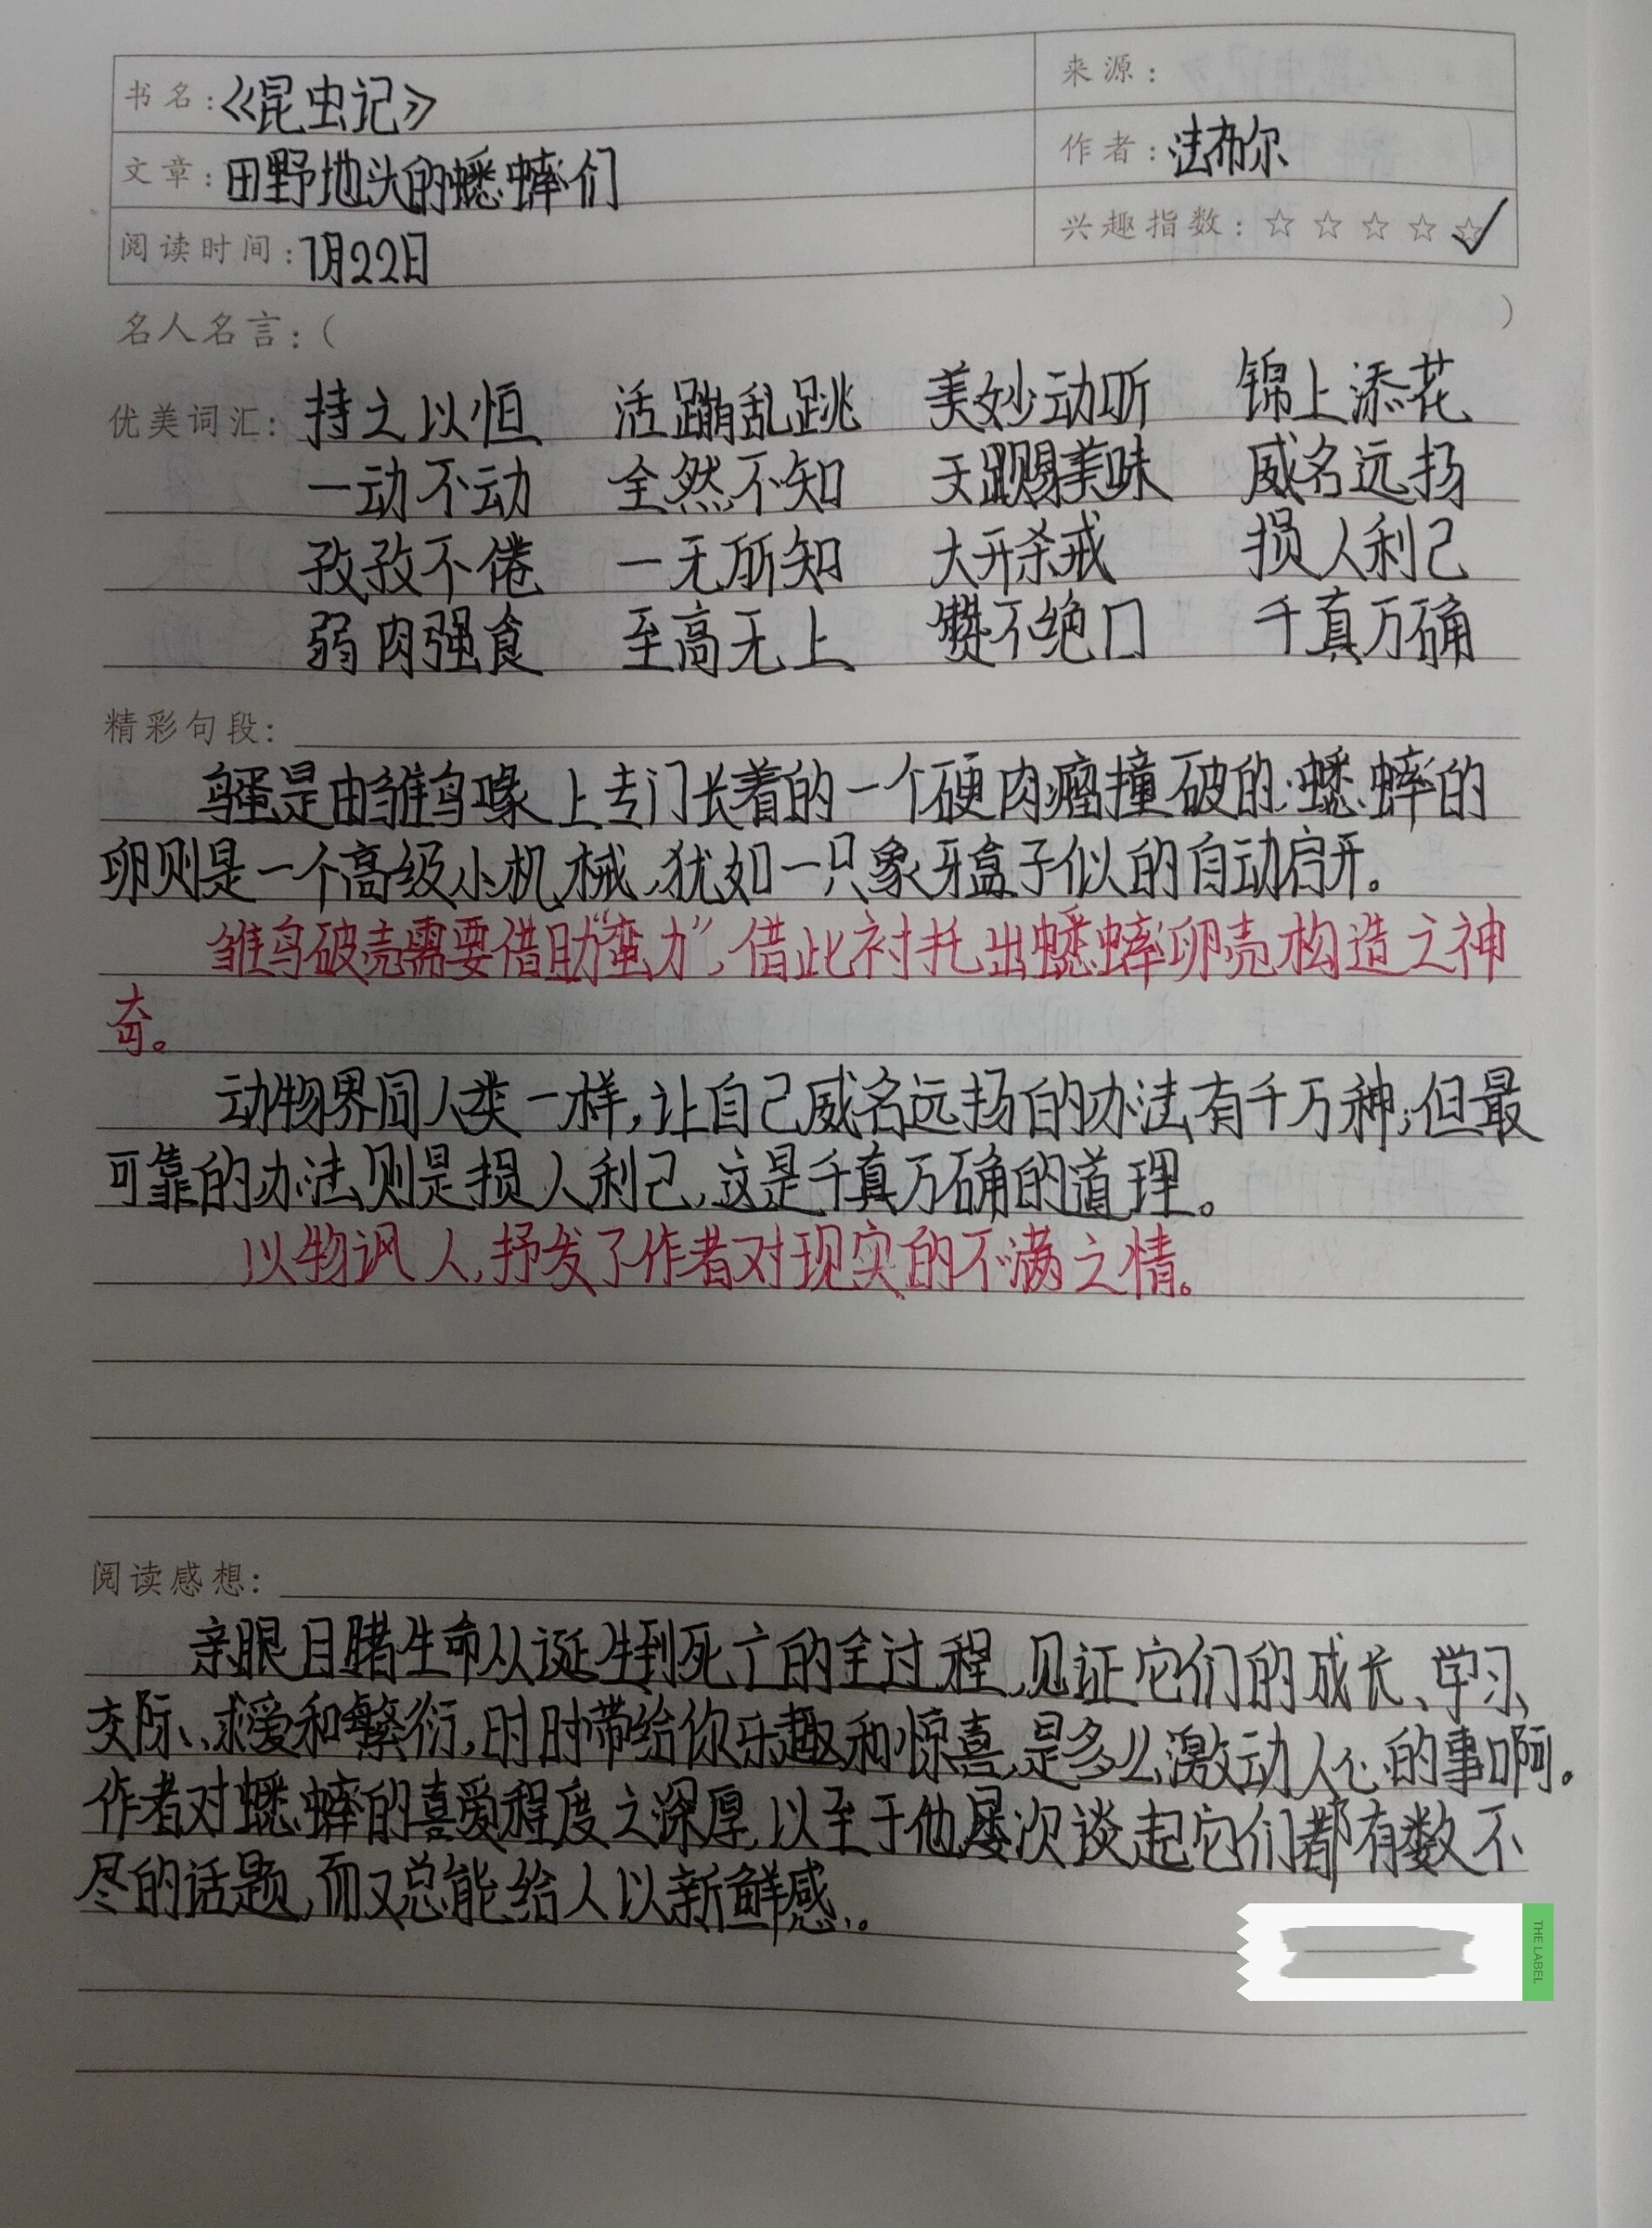 书名:《昆虫记》
来源:
文章:田野地头的蟋蟀们
作者:法布尔
阅读时间:7月22日
兴趣指数:☆☆☆☆☆✓
名人名言:( )
优美词汇: 持之以恒 活蹦乱跳 美妙动听 锦上添花
一动不动 全然不知 天赐美味 威名远扬
孜孜不倦 一无所知 大开杀戒 损人利己
弱肉强食 至高无上 赞不绝口 千真万确
精彩句段:
鸟蛋是由雏鸟喙上专门长着的一个硬肉瘤撞破的.蟋蟀的
卵则是一个高级小机械,犹如一只象牙盒子似的自动启开。
雏鸟破壳需要借助“蛮力”,借此衬托出蟋蟀卵壳构造之神
奇。
动物界同人类一样,让自己威名远扬的办法有千万种;但最
可靠的办法则是损人利己,这是千真万确的道理。
以物讽人,抒发了作者对现实的不满之情。
阅读感想:
亲眼目睹生命从诞生到死亡的全过程,见证它们的成长、学习、
交际、求爱和繁衍,时时带给你乐趣和惊喜,是多么激动人心的事啊。
作者对蟋蟀的喜爱程度之深厚,以至于他屡次谈起它们都有数不
尽的话题,而又总能给人以新鲜感。
THE LABEL